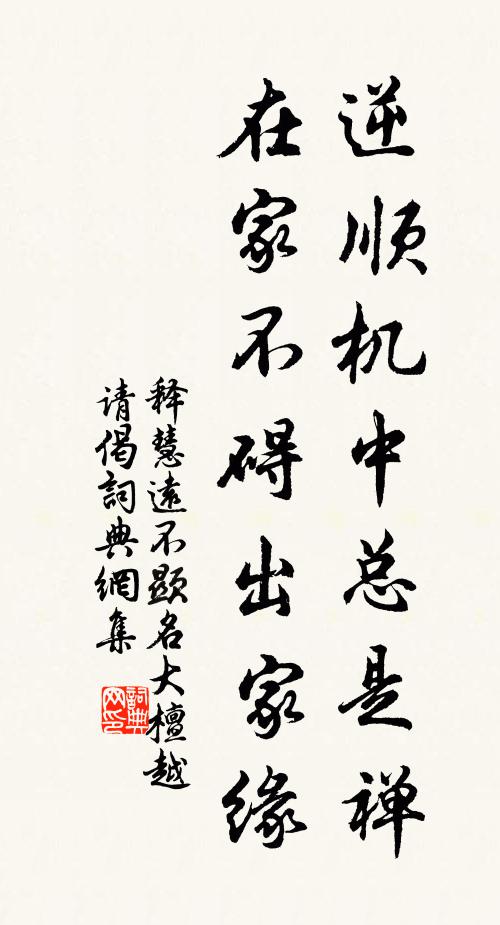 逆顺机中总是禅
在家不碍出家缘
释慧遠不题名大檀越
请偈詞典網集
詞典网印